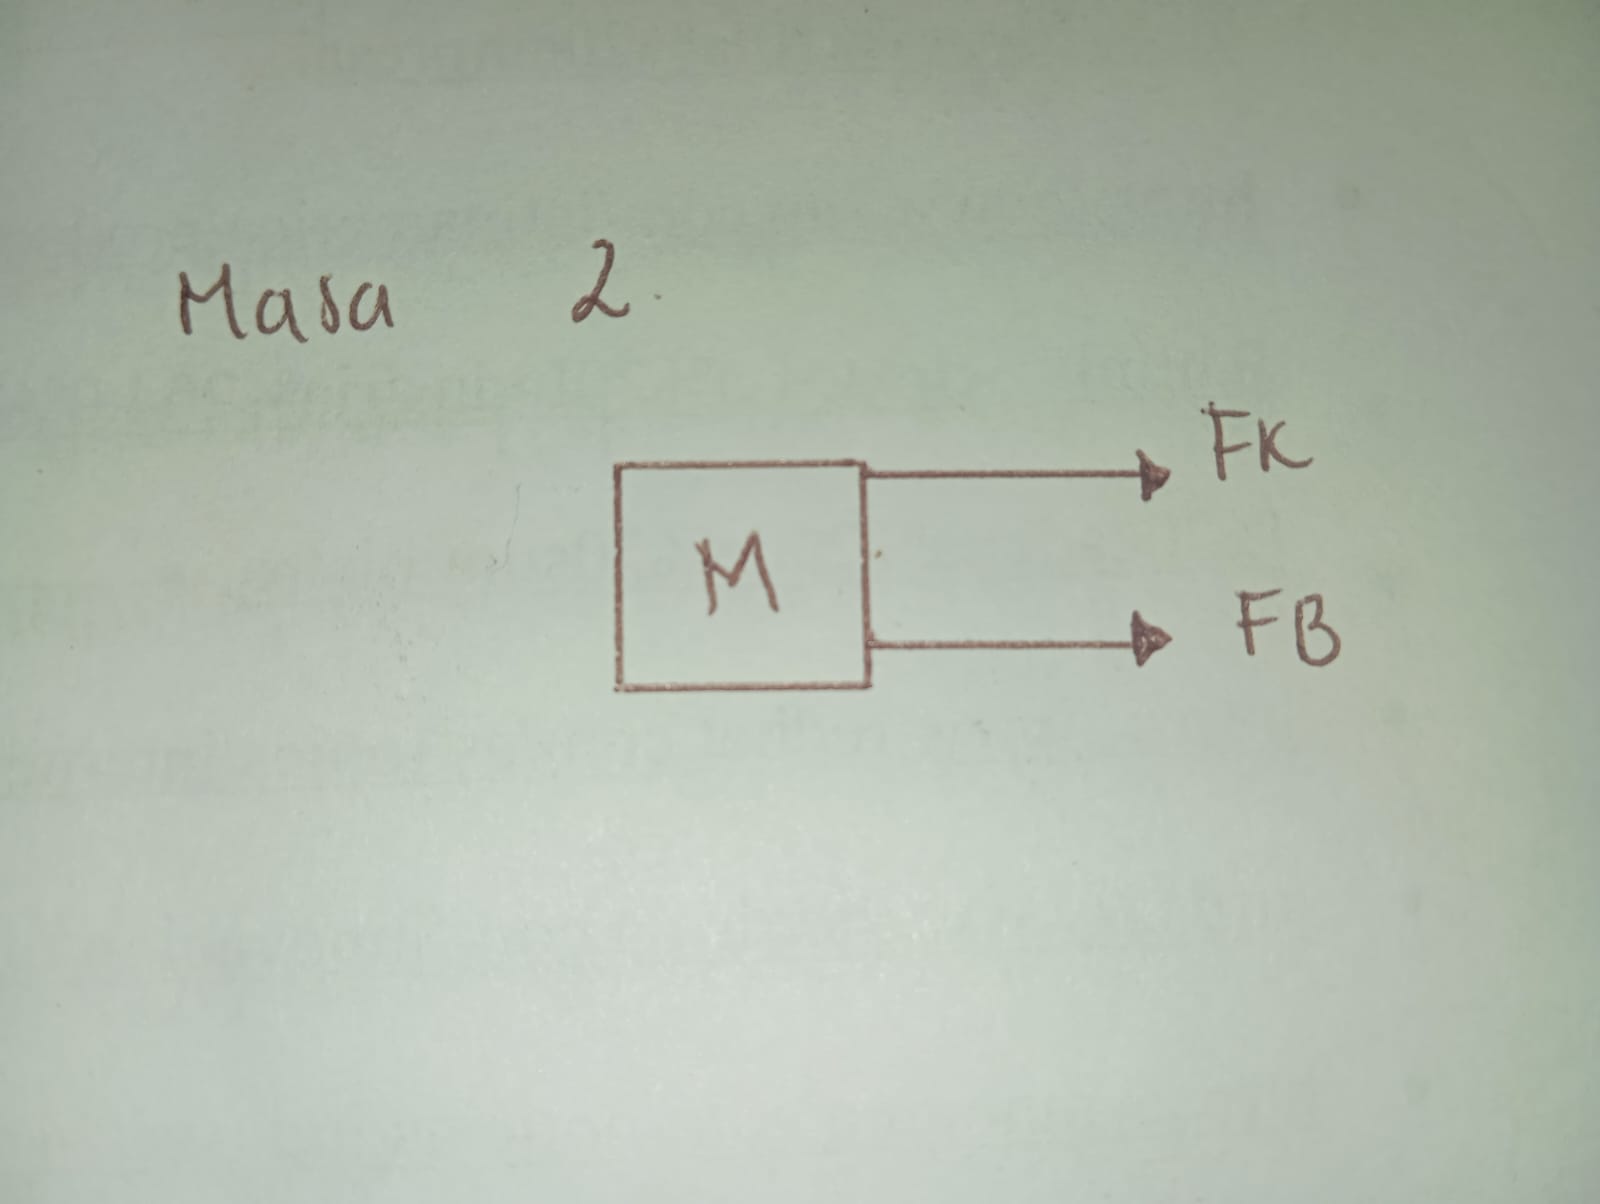 Masa 2.
FK
M
FB